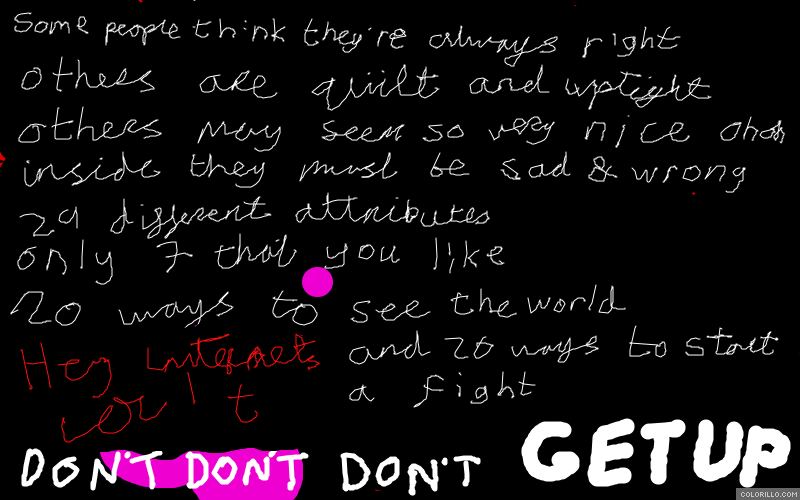 Some people think they're always right
others are quilt and uptight
others may seem so very nice
inside they must be sad & wrong
29 different attributes
only 7 that you like
20 ways to see the world
Hey
and 20 ways to start
a fight
DON'T DON'T DON'T GET UP
COLORILLO.COM